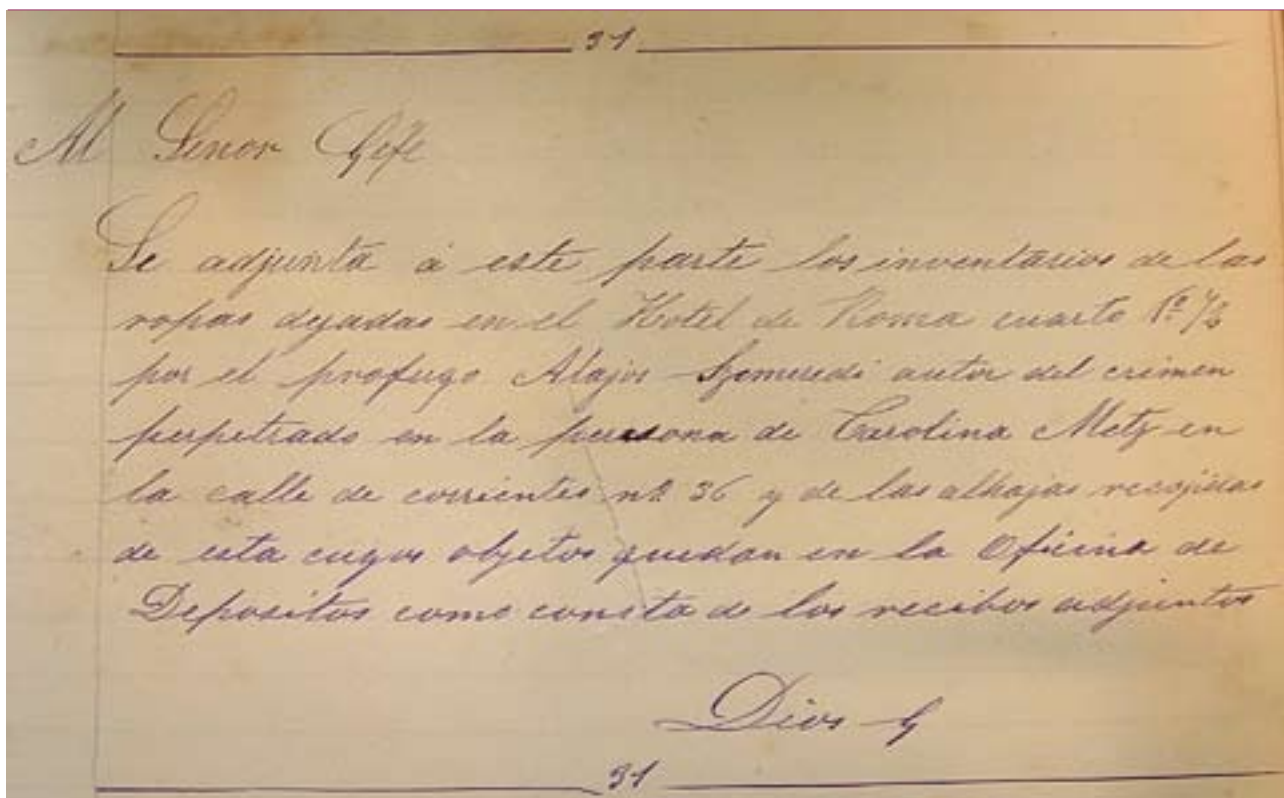 31
Al Señor Gefe
Se adjunta á este parte los inventarios de las
ropas dejadas en el Hotel de Roma cuarto
por el profugo Alajos Szemeredi autor del crimen
perpetrado en la persona de Carolina Metz en
la calle de corrientes nº 36 y de las alhajas recojidas
de esta cuyos objetos quedan en la Oficina de
Depositos como consta de los recibos adjuntos
Dios G
31